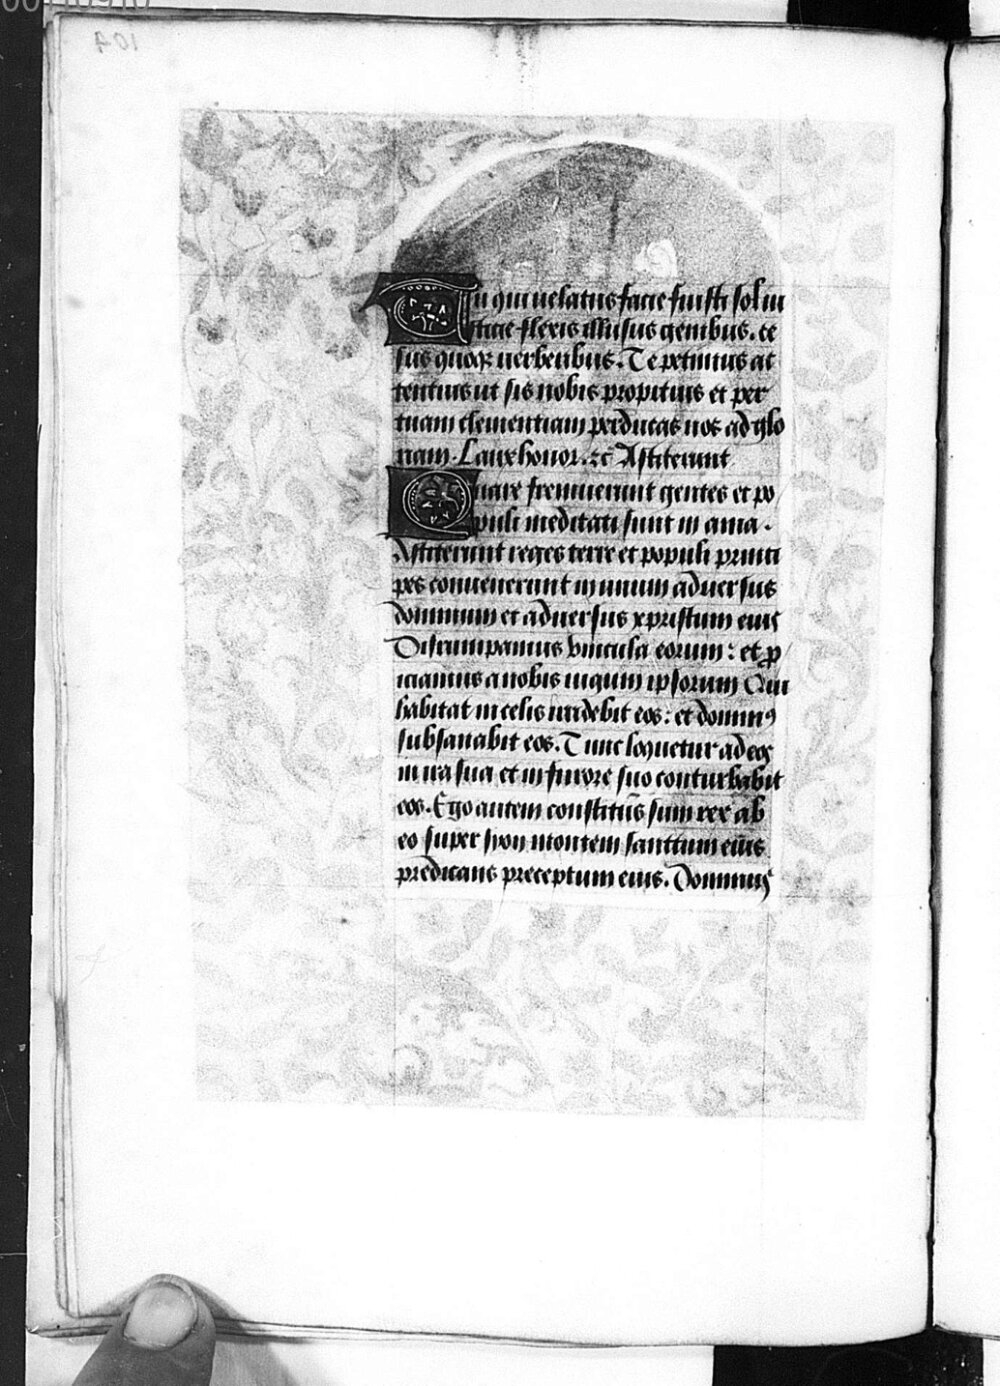 Tu qui uelatus facie fuisti sol iu
sticie flexis illusus genibus. ce
sus quoqꝫ uerberibus. Te petimus at
tentius ut sis nobis propitius et per
tuam clementiam perducas nos ad glo
riam. Laux honor. ꝛc̄ Astiterunt
Quare fremuerunt gentes et po
puli meditati sunt in ania.
Astiterunt reges terre et populi princi
pes conuenerunt in unum aduersus
dominum et aduersus xpristum eius
Disrumpamus vincula eorum: et ꝓ
iciamus a nobis iugum ipsorum Qui
habitat in celis irridebit eos: et dominꝰ
subsanabit eos. Tunc loquetur ad eos
in ira sua et in furore suo conturbabit
eos. Ego autem constitūs sum rex ab
eo super syon montem santtum eius
predicans preceptum eius. Dominus